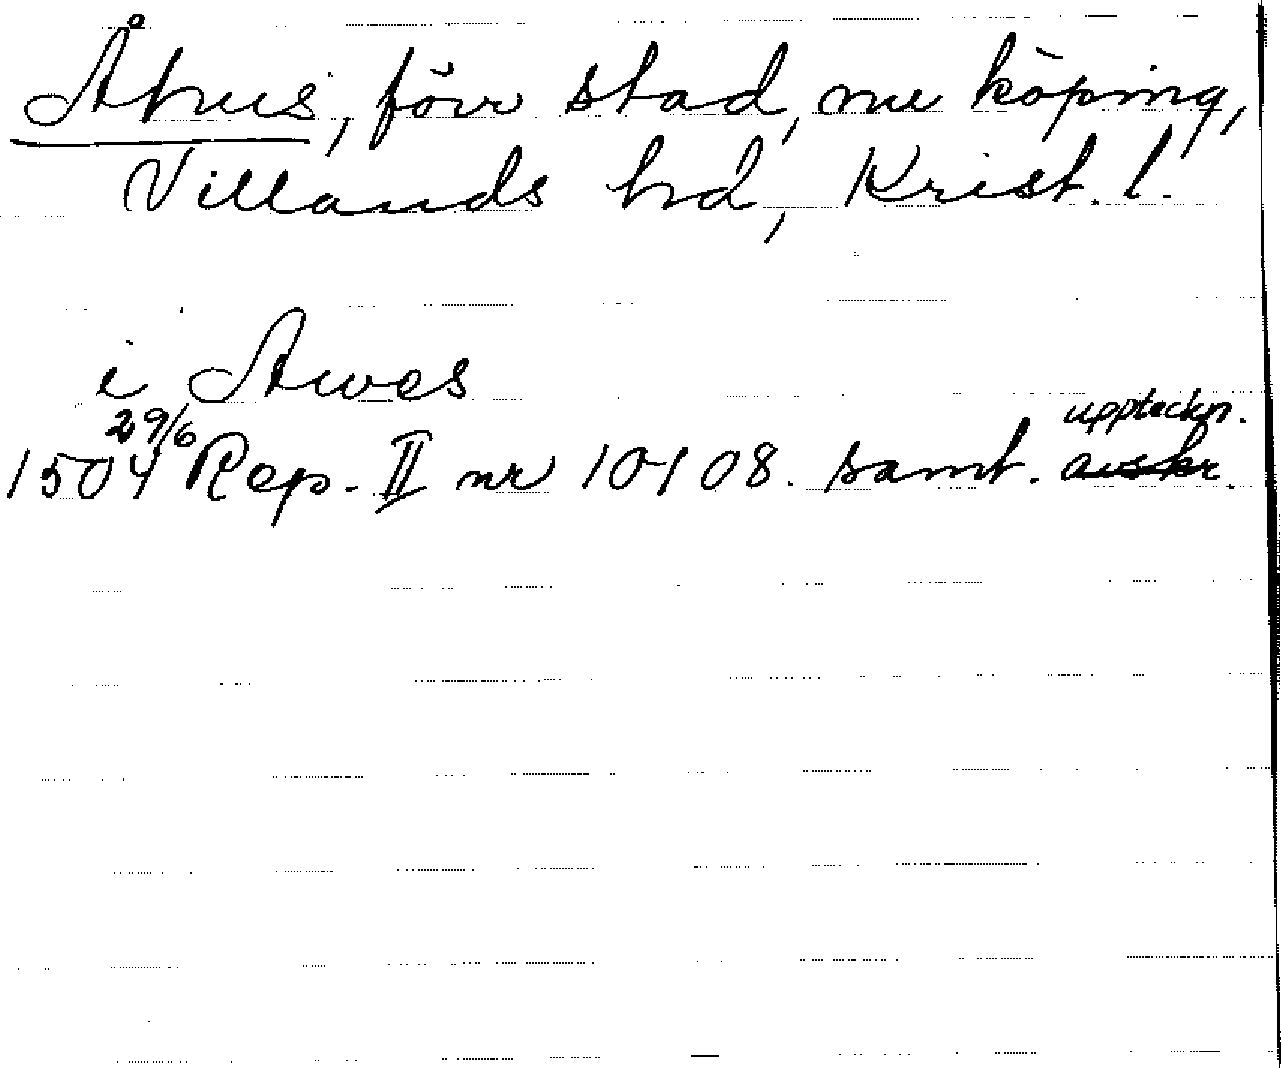 Åhus, förr stad, nu köping,
Villands hd, Krist. l.
i Awes
1504 29/6 Rep. II nr 10108. samt. uppteckn. avskr.